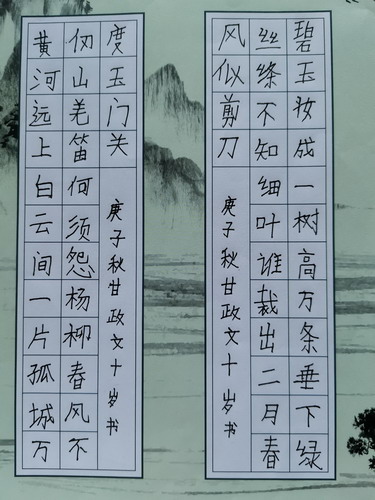 碧玉妆成一树高万条垂下绿
丝绦不知细叶谁裁出二月春
风似剪刀
庚子秋甘政文十岁书
黄河远上白云间一片孤城万
仞山羌笛何须怨杨柳春风不
度玉门关
庚子秋甘政文十岁书